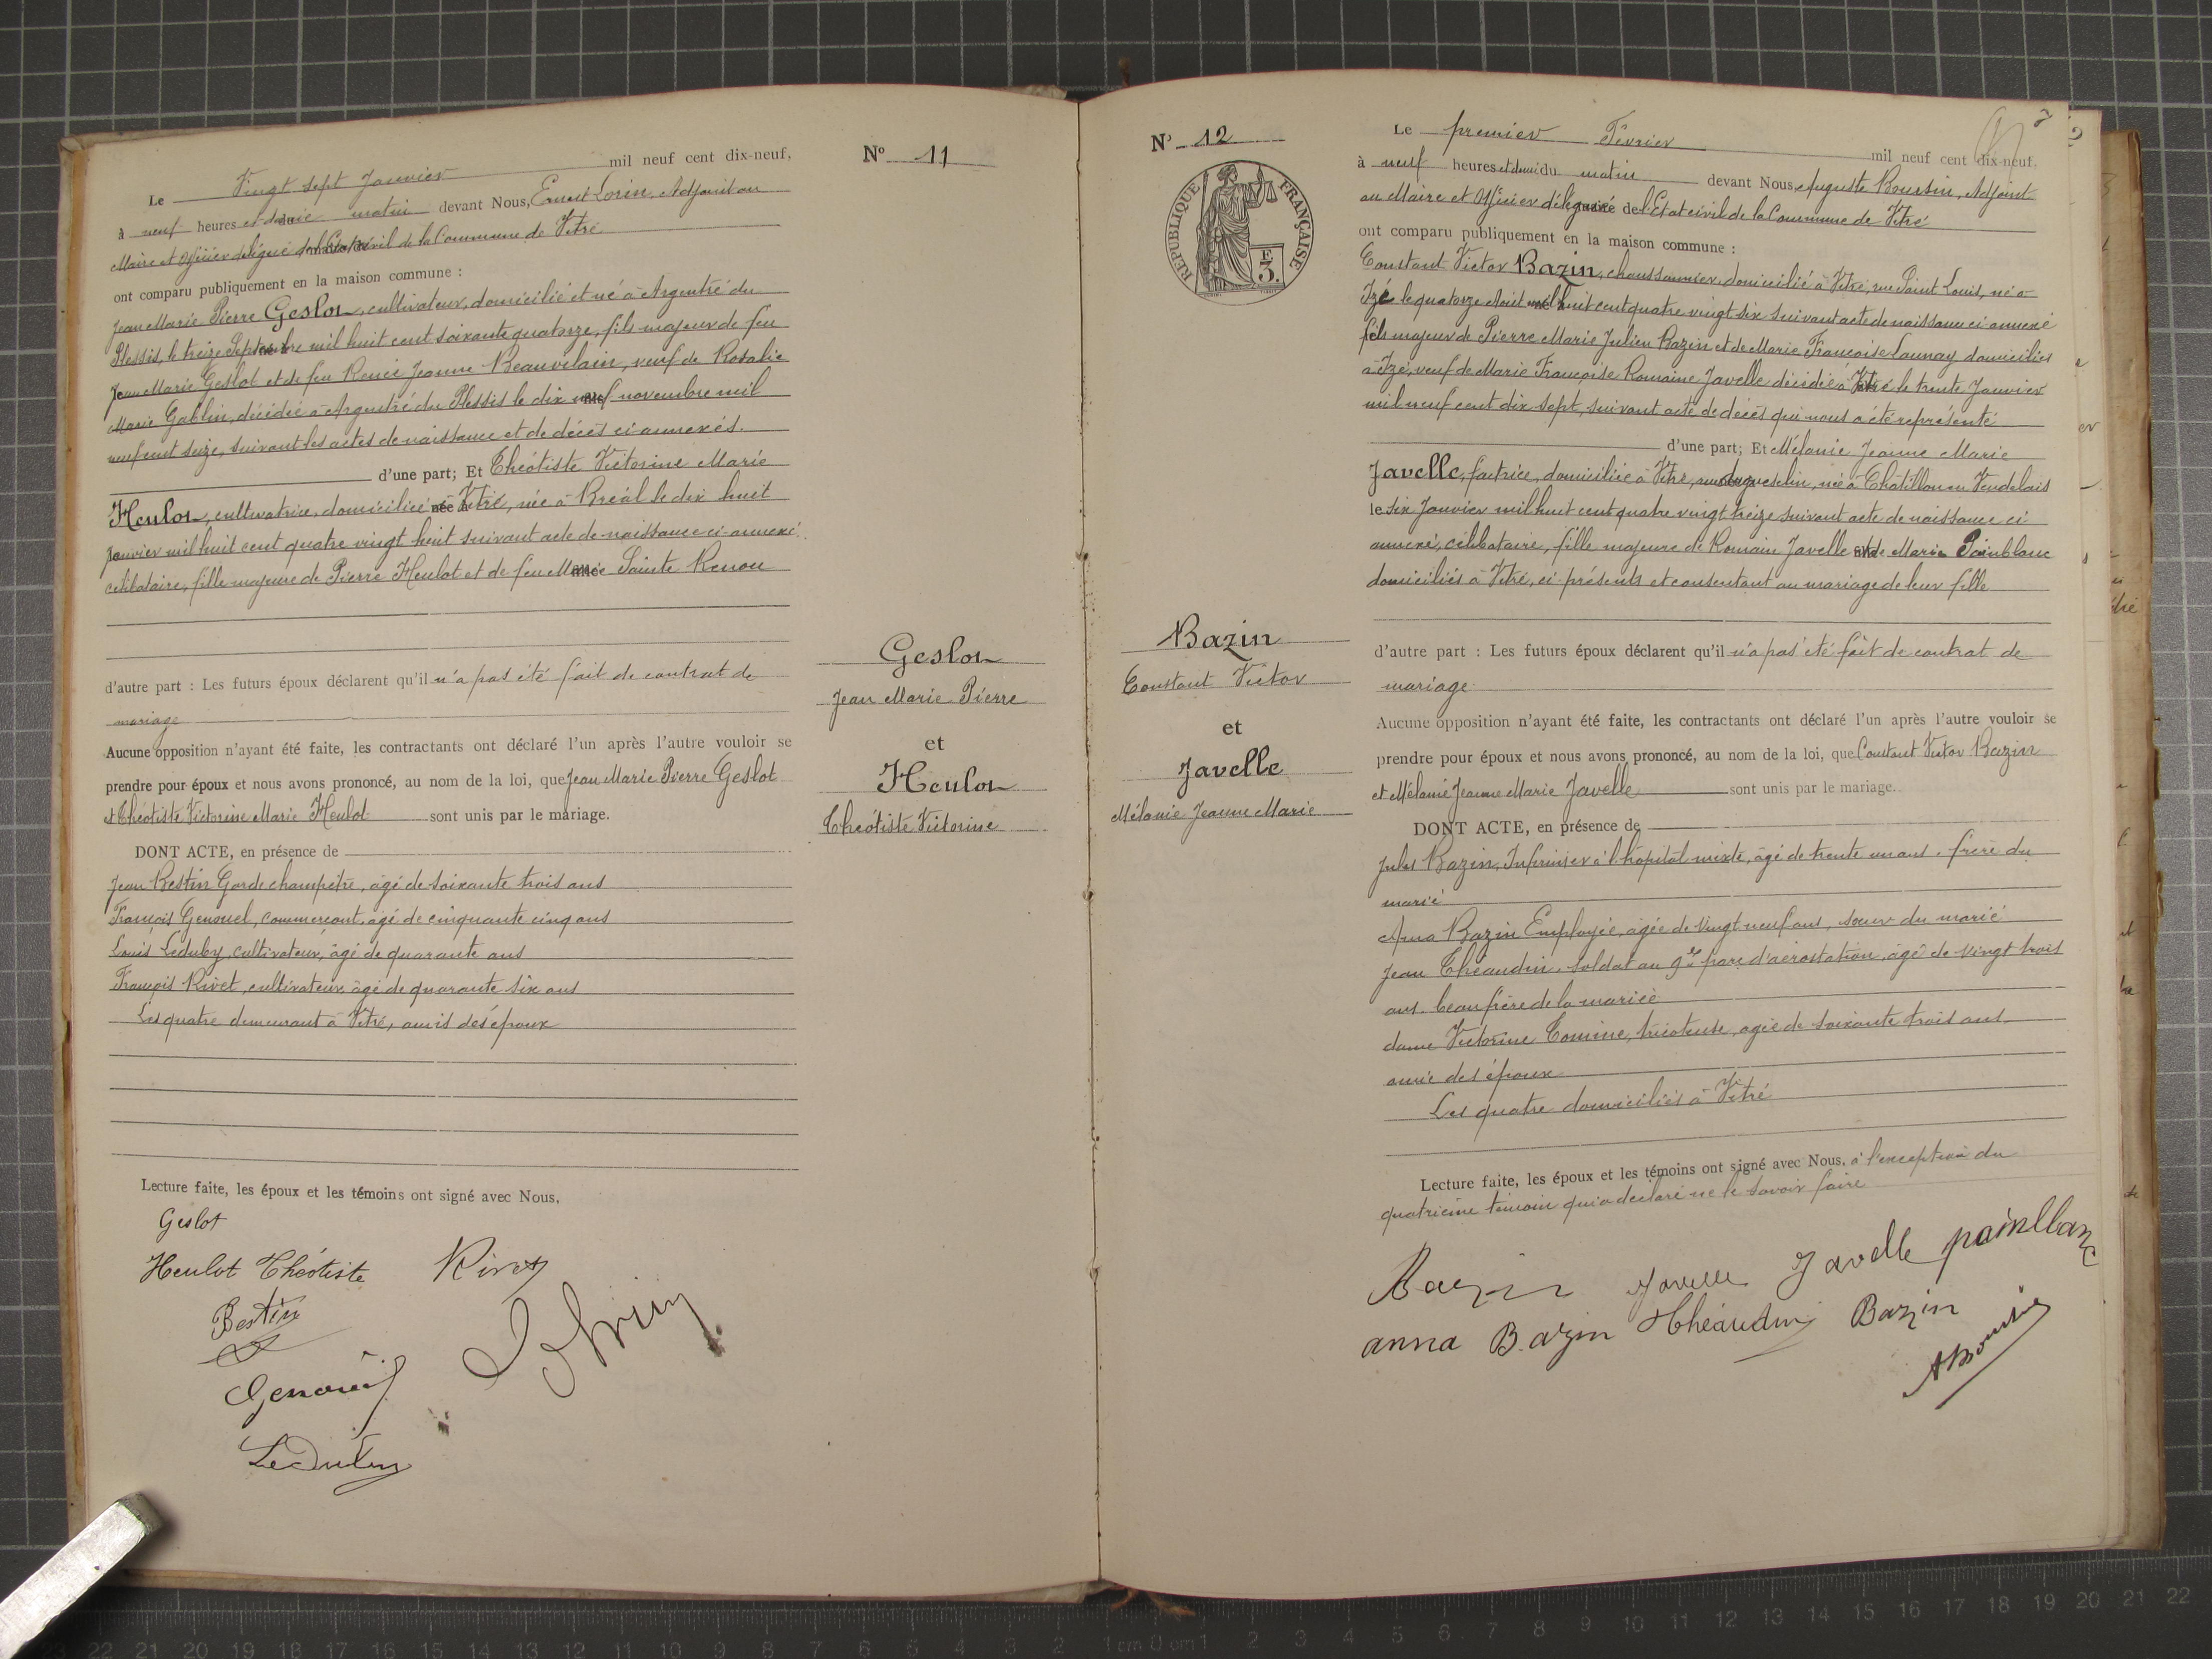 Le Vingt sept Janvier mil neuf cent dix-neuf,
à neuf heures et demie matin devant Nous, Ernest Lorin, Adjoint au
Maire et Officier délégué de l'Etat civil de la Commune de Vitré
ont comparu publiquement en la maison commune :
Jean Marie Pierre Geslot, cultivateur, domicilié et né à Argentré du
Plessis, le treize Septembre mil huit cent soixante quatorze, fils majeur de feu
Jean Marie Geslot et de feu Renée Jeanne Beauvilain, veuf de Rosalie
Marie Gablin, décédée à Argentré du Plessis le dix neuf novembre mil
neuf cent seize, suivant les actes de naissance et de décès ci-annexés.
d'une part; Et Théotiste Victorine Marie
Heulot, cultivatrice, domiciliée à Vitré, née à Bréal le dix huit
Janvier mil huit cent quatre vingt huit suivant acte de naissance ci-annexé.
célibataire, fille majeure de Pierre Heulot et de feu Marie Sainte Renou
d'autre part : Les futurs époux déclarent qu'il n'a pas été fait de contrat de
mariage
Aucune opposition n'ayant été faite, les contractants ont déclaré l'un après l'autre vouloir se
prendre pour époux et nous avons prononcé, au nom de la loi, que Jean Marie Pierre Geslot
et Théotiste Victorine Marie Heulot sont unis par le mariage.
DONT ACTE, en présence de
Jean Bestin Garde champêtre, âgé de soixante trois ans
François Genouel, commerçant, âgé de cinquante cinq ans
Louis Leduby, cultivateur, âgé de quarante ans
François Rivet, cultivateur âgé de quarante six ans
Les quatre demeurant à Vitré, amis des époux
Lecture faite, les époux et les témoins ont signé avec Nous,
Geslot
Heulot Théotiste Rivet
Bestin
Genouel
Leduby
N° 11
Geslot
Jean Marie Pierre
et
Heulot
Théotiste Victorine
N° 12
RÉPUBLIQUE FRANÇAISE
E
3.
Bazin
Constant Victor
et
Javelle
Mélanie Jeanne Marie
Le premier Février mil neuf cent dix-neuf,
à neuf heures et demi du matin devant Nous, Auguste Boursin, Adjoint
au Maire et Officier délégué de l'Etat civil de la Commune de Vitré
ont comparu publiquement en la maison commune :
Constant Victor Bazin, chaussonnier, domicilié à Vitré, rue Saint Louis, né à
Izé le quatorze Août mil huit cent quatre vingt six suivant acte de naissance ci annexé
fils majeur de Pierre Marie Julien Bazin et de Marie Françoise Launay domiciliés
à Izé, veuf de Marie Françoise Romaine Javelle décédée à Vitré le trente Janvier
mil neuf cent dix sept, suivant acte de décès qui nous a été représenté
d'une part; Et Mélanie Jeanne Marie
Javelle, factrice, domiciliée à Vitré, rue duguesclin, née à Chatillon en Vendelais
le six Janvier mil huit cent quatre vingt treize suivant acte de naissance ci
annexé, célibataire, fille majeure de Romain Javelle et de Marie Painblanc
domiciliés à Vitré, ci-présents et consentant au mariage de leur fille
d'autre part : Les futurs époux déclarent qu'il n'a pas été fait de contrat de
mariage
Aucune opposition n'ayant été faite, les contractants ont déclaré l'un après l'autre vouloir se
prendre pour époux et nous avons prononcé, au nom de la loi, que Constant Victor Bazin
et Mélanie Jeanne Marie Javelle sont unis par le mariage.
DONT ACTE, en présence de
Jules Bazin, Infirmier à l'hôpital mixte, âgé de trente un ans, frère du
marié
Anna Bazin Employée, âgée de vingt neuf ans, soeur du marié
Jean Théaudin, soldat au 9e parc d'aérostation, âgé de vingt trois
ans, beau frère de la mariée
dame Victorine Comine, tricoteuse, âgée de soixante trois ans,
amie des époux
Les quatre domiciliés à Vitré
Lecture faite, les époux et les témoins ont signé avec Nous, à l'exception du
quatrième témoin qui a déclaré ne le savoir faire
Bazin Javelle Javelle painblanc
anna Bazin Théaudin Bazin
ABoursin